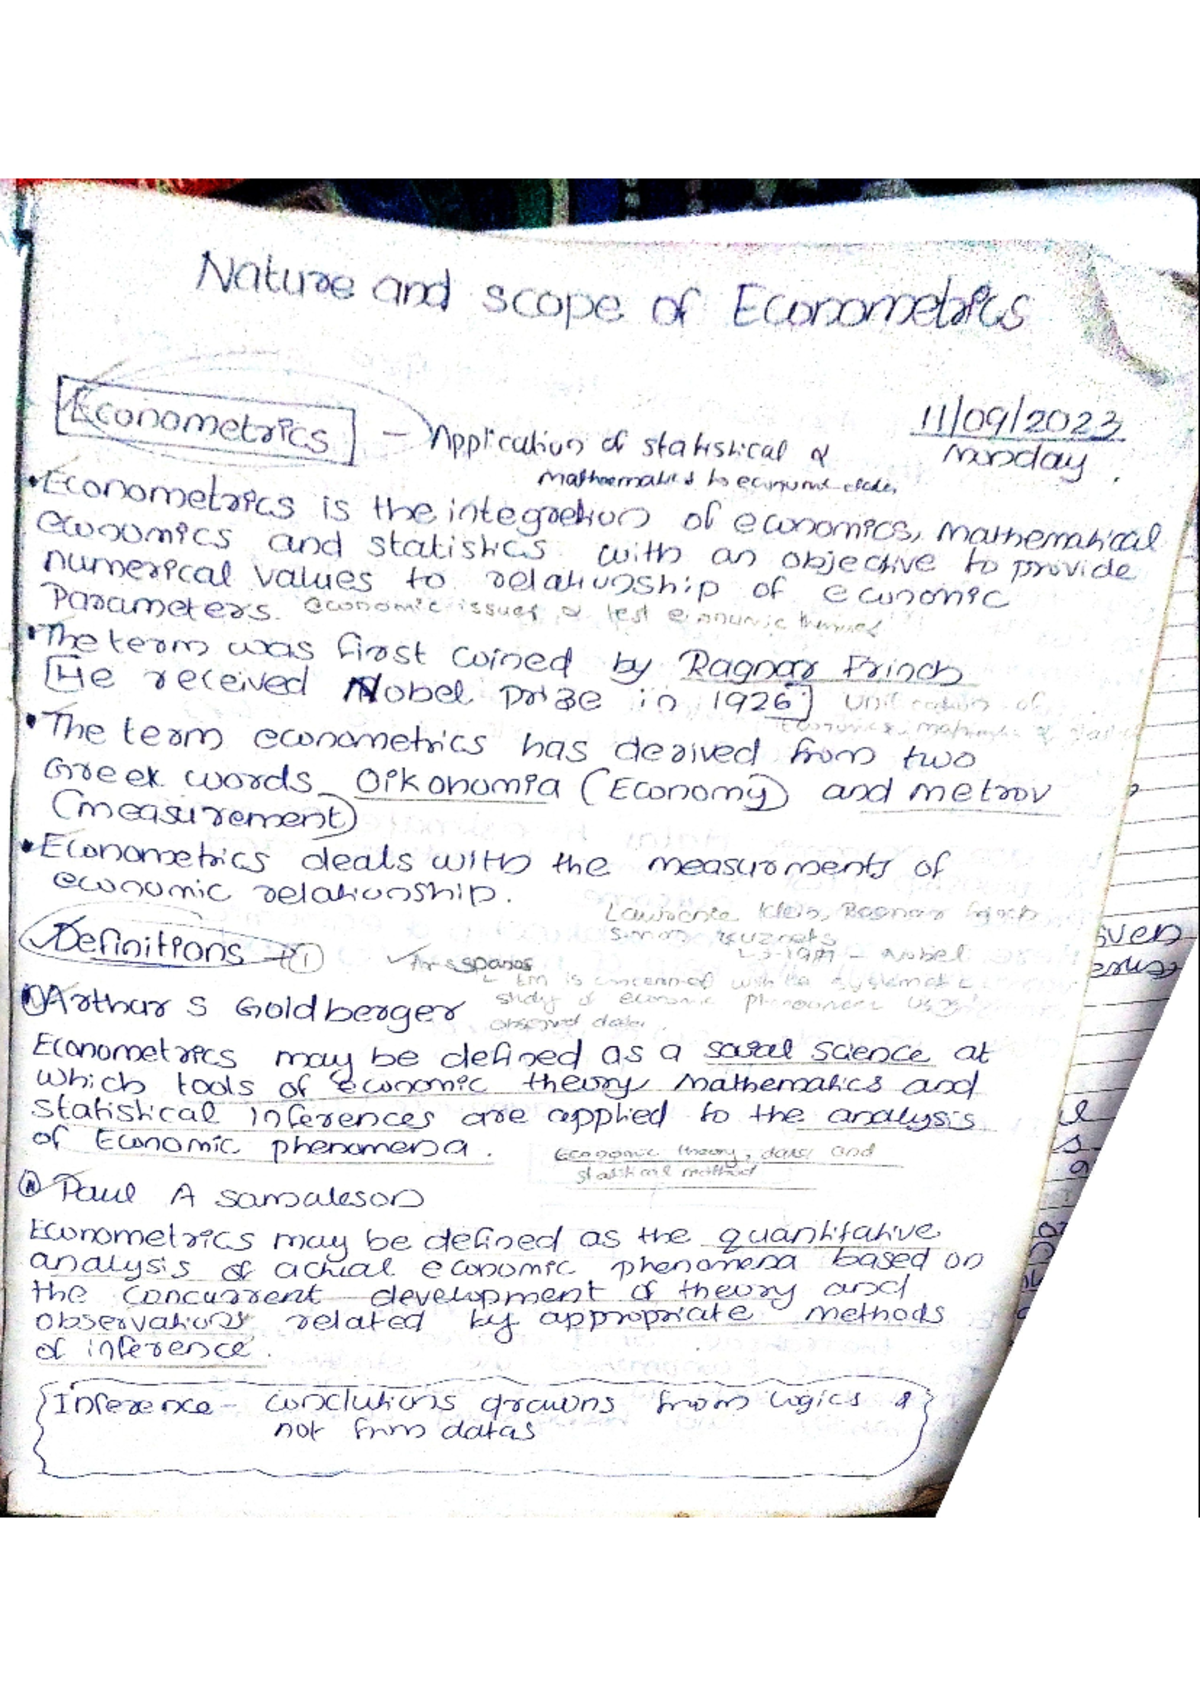 Nature and scope of Econometrics
11/09/2023
Monday
Econometrics - Application of statistical &
Mathematics to economic data
• Econometrics is the integration of economics, Mathematical
economics and statistics with an objective to provide
numerical values to relationship of economic
Parameters. economic issues & test economic
• The term was first coined by Ragnar Frinch
[He received Nobel prize in 1926] unification of
• The term econometrics has derived from two
Greek words Oikonomia (Economy) and metrov
(measurement)
• Econometrics deals with the measurments of
economic relationship.
Lawrence Klein, Ragnar
Simon Kuznets
Nobel
Definitions → ①
spanos
EM is concerned with the systematic
study of economic phenomenon using
observed data.
① Arthur S Goldberger
Econometrics may be defined as a social science at
which tools of economic theory Mathematics and
statistical inferences are applied to the analysis
of Economic phenomena.
Economic theory, data and
statistical method
Paul A Samaleson
Econometrics may be defined as the quantitative
analysis of actual economic phenomena based on
the concurrent development of theory and
observations related by appropriate methods
of inference.
Inference - conclutions drawns from logics &
not from datas